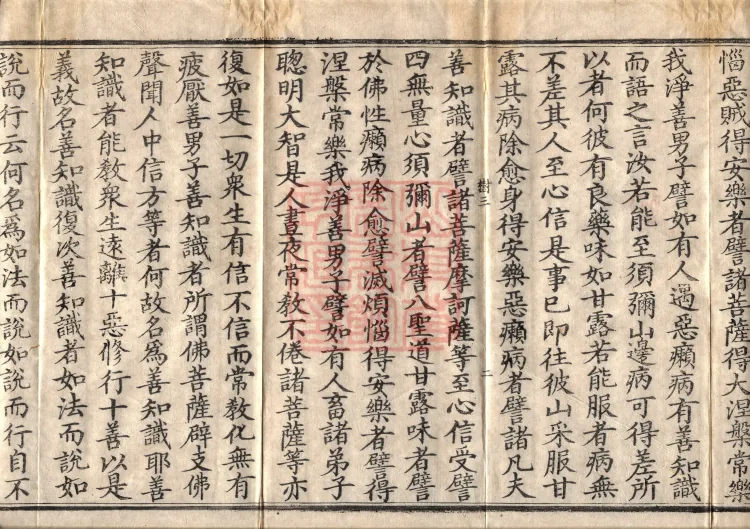 惱惡賊得安樂者譬諸菩薩得大涅槃常樂
我淨善男子譬如有人遇惡癩病有善知識
而語之言汝若能至須彌山邊病可得差所
以者何彼有良藥味如甘露若能服者病無
不差其人至心信是事已即往彼山采服甘
露其病除愈身得安樂惡癩病者譬諸凡夫
樹三
二
善知識者譬諸菩薩摩訶薩等至心信受譬
四無量心須彌山者譬八聖道甘露味者譬
於佛性癩病除愈譬滅煩惱得安樂者譬得
涅槃常樂我淨善男子譬如有人畜諸弟子
聰明大智是人晝夜常教不倦諸菩薩等亦
復如是一切衆生有信不信而常教化無有
疲厭善男子善知識者所謂佛菩薩辟支佛
聲聞人中信方等者何故名爲善知識耶善
知識者能教衆生遠離十惡修行十善以是
義故名善知識復次善知識者如法而說如
說而行云何名爲如法而說如說而行自不